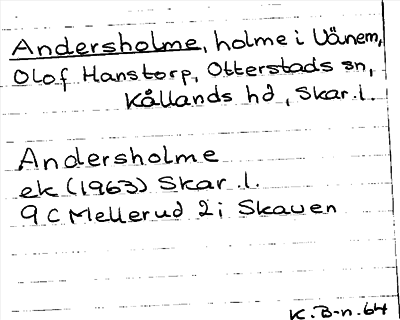 Andersholme, holme i Vänern,
Olof Hanstorp, Otterstads sn,
Kållands hd, Skar.l.
Andersholme
ek (1963) Skar.l.
9 C Mellerud 2 i Skauen
K.B-n. 64